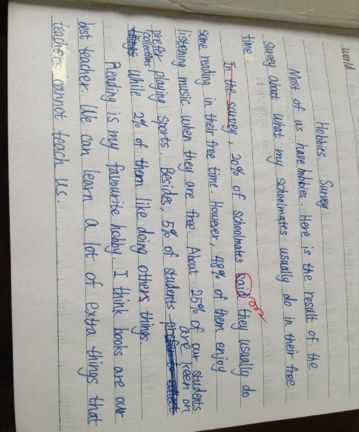 world
Hobbies Survey
Most of us have hobbies. Here is the result of the
survey about what my schoolmates usually do in their free
time.
In the survey, 20% of schoolmates said they usually do
some reading in their free time. However, 48% of them enjoy
listening music when they are free. About 25% of our students
prefer playing sports. Besides, 5% of students are keen on
collections while 2% of them like doing others things.
Reading is my favourite hobby. I think books are our
best teacher. We can learn a lot of extra things that
teachers cannot teach us.